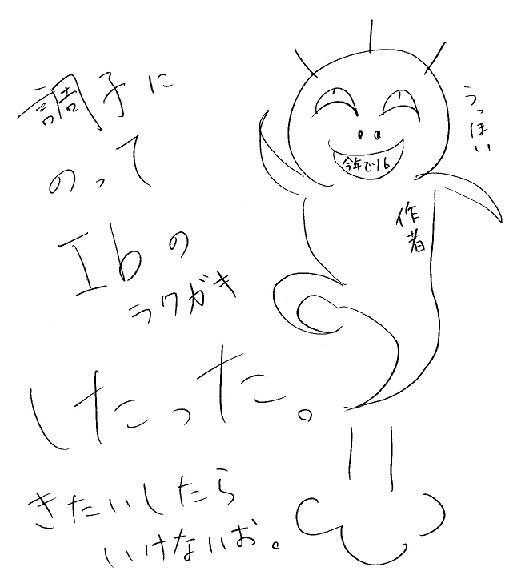 調子に
のって
Ibの
ラクガキ
したった。
きたいしたら
いけないお。
うっほい
今年で16
作者